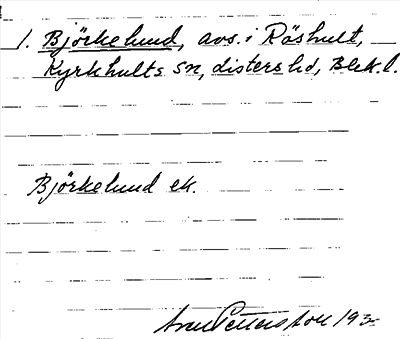 1. Björkelund, avs. i Råshult,
Kyrkhults sn, Listers hd, Blek. l.
Björkelund ek.
Sven Pettersson 193